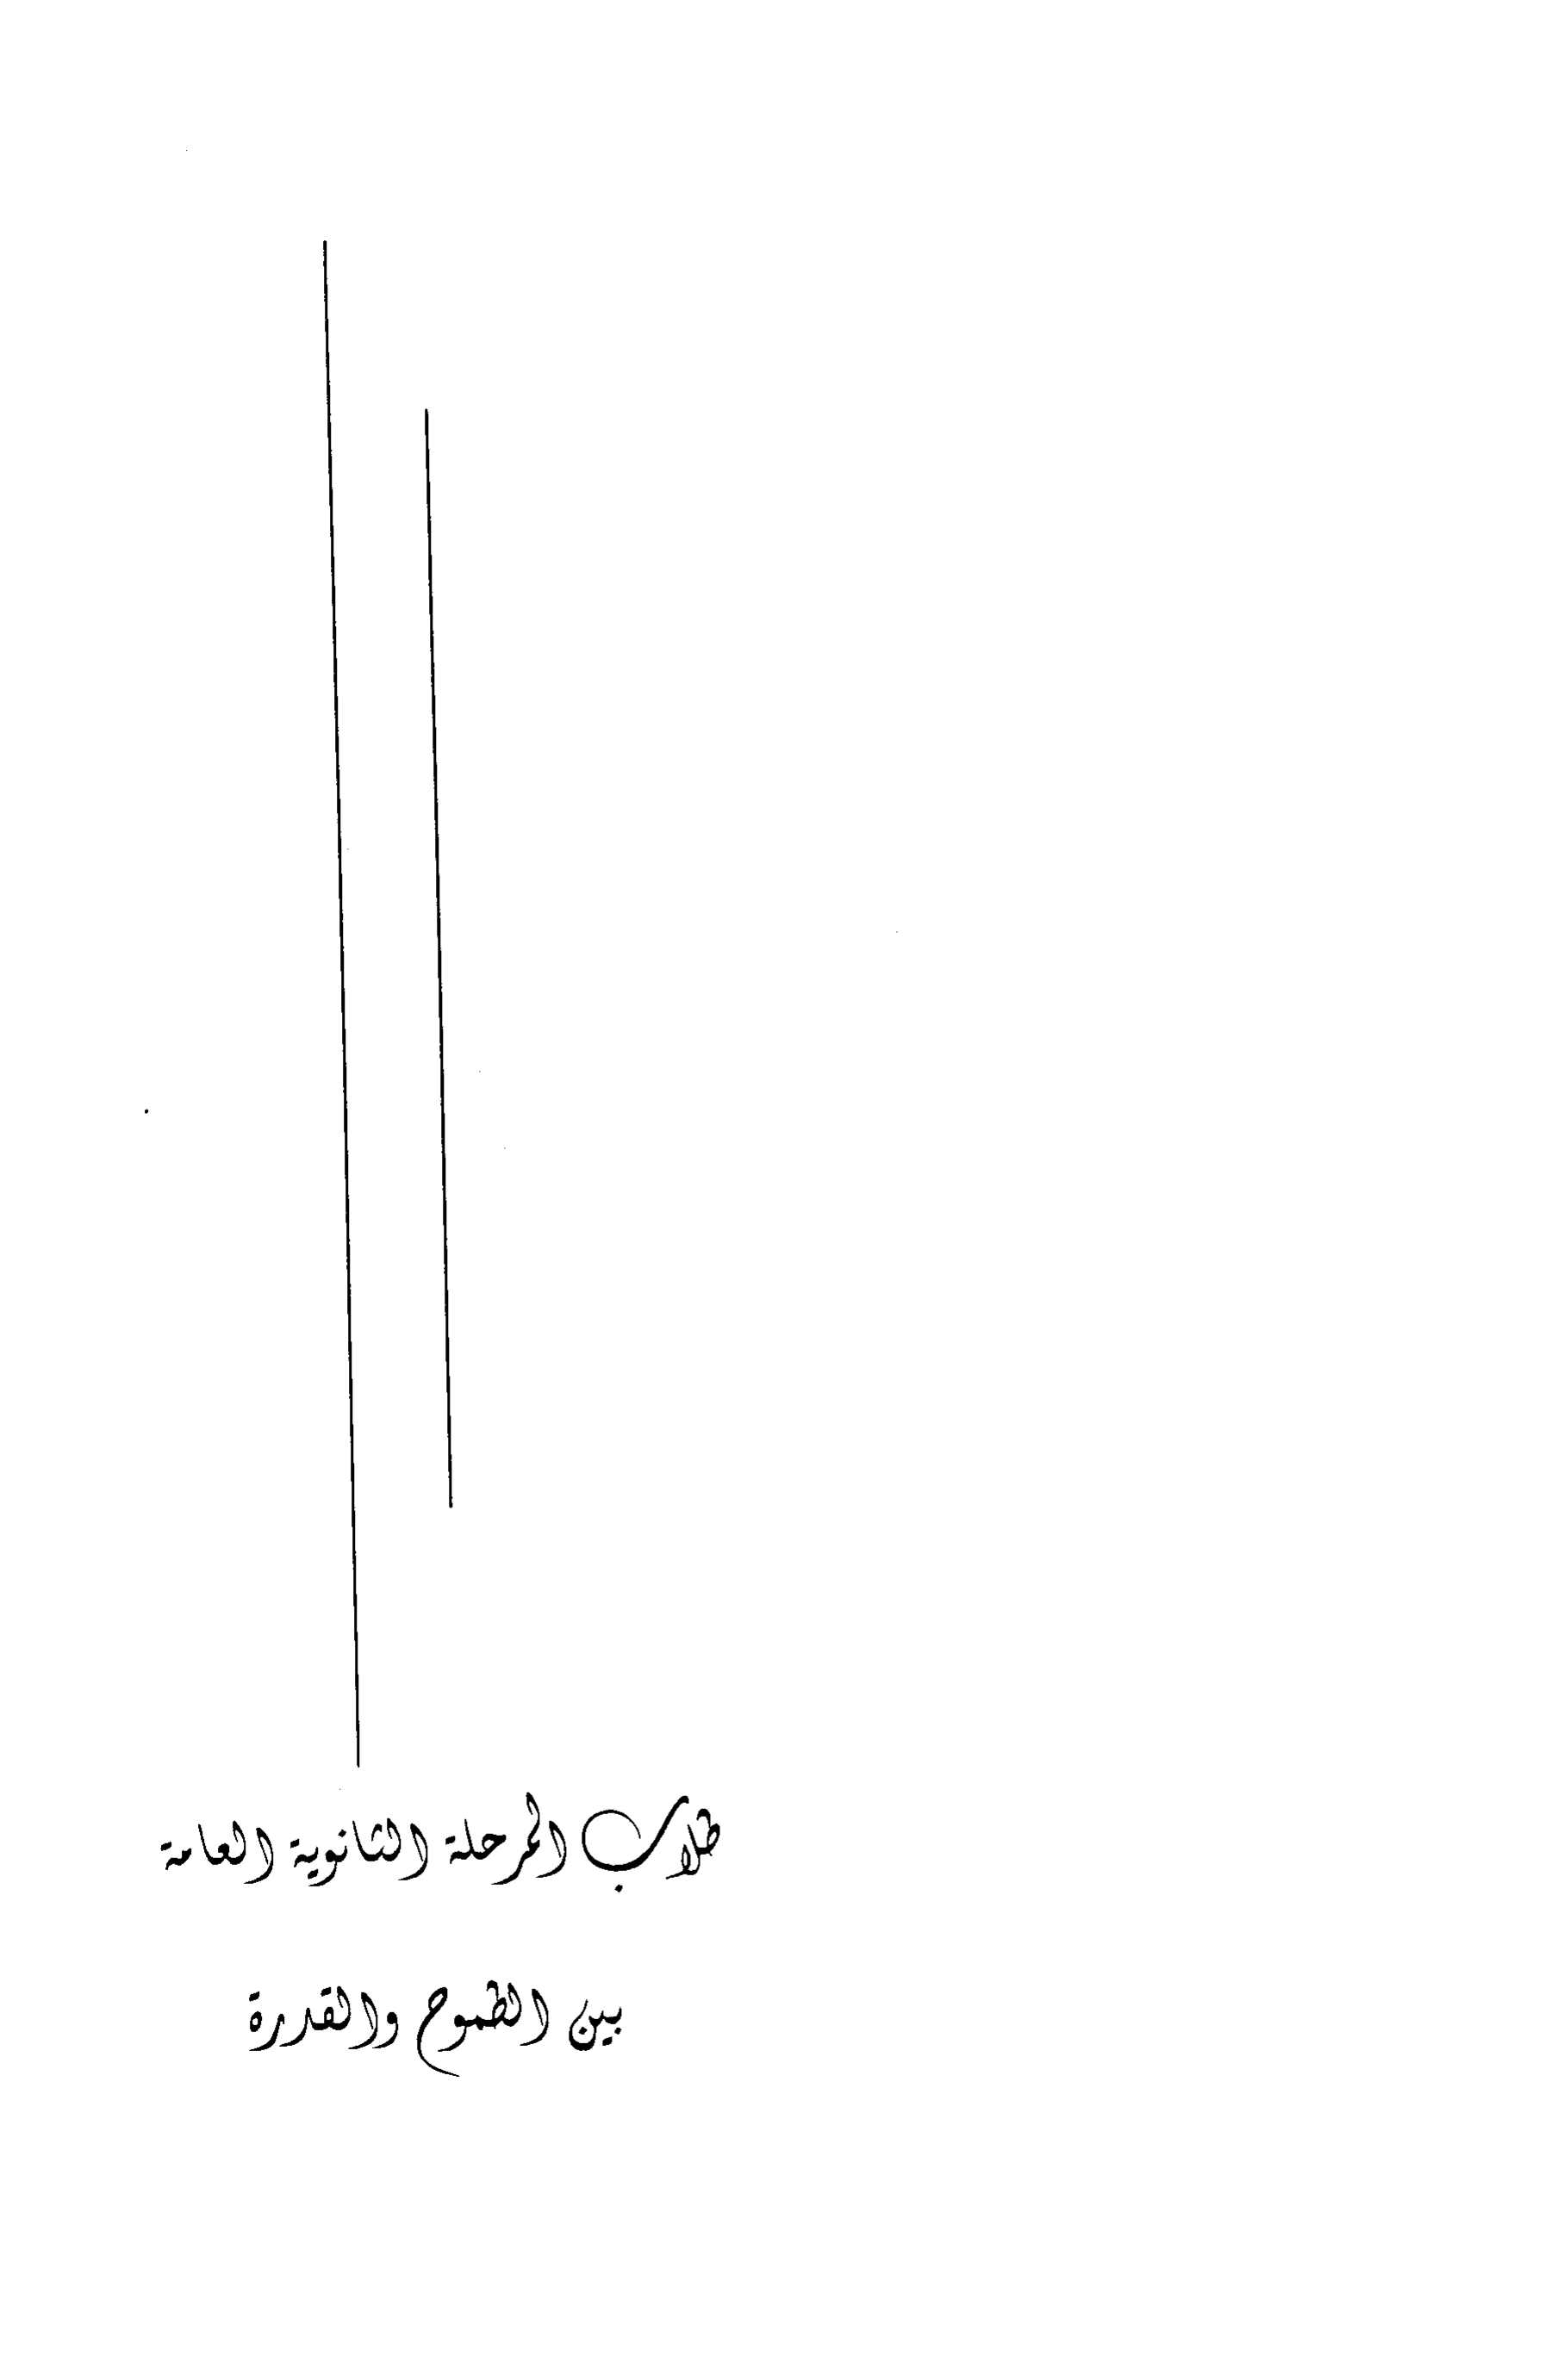 طلاب المرحلة الثانوية العامة
بين الطموح والقدرة